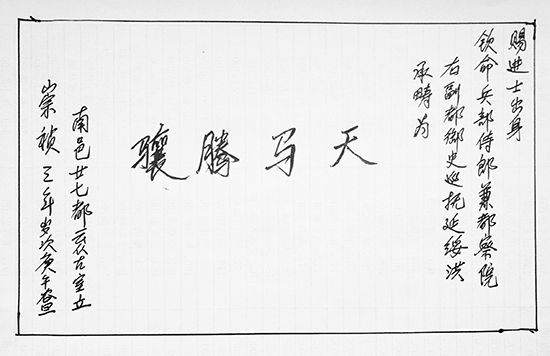 赐进士出身
钦命兵部侍郎兼都察院
右副都御史巡抚延绥洪
承畴为
天马腾骧
南邑廿七都 立
崇祯三年岁次庚午